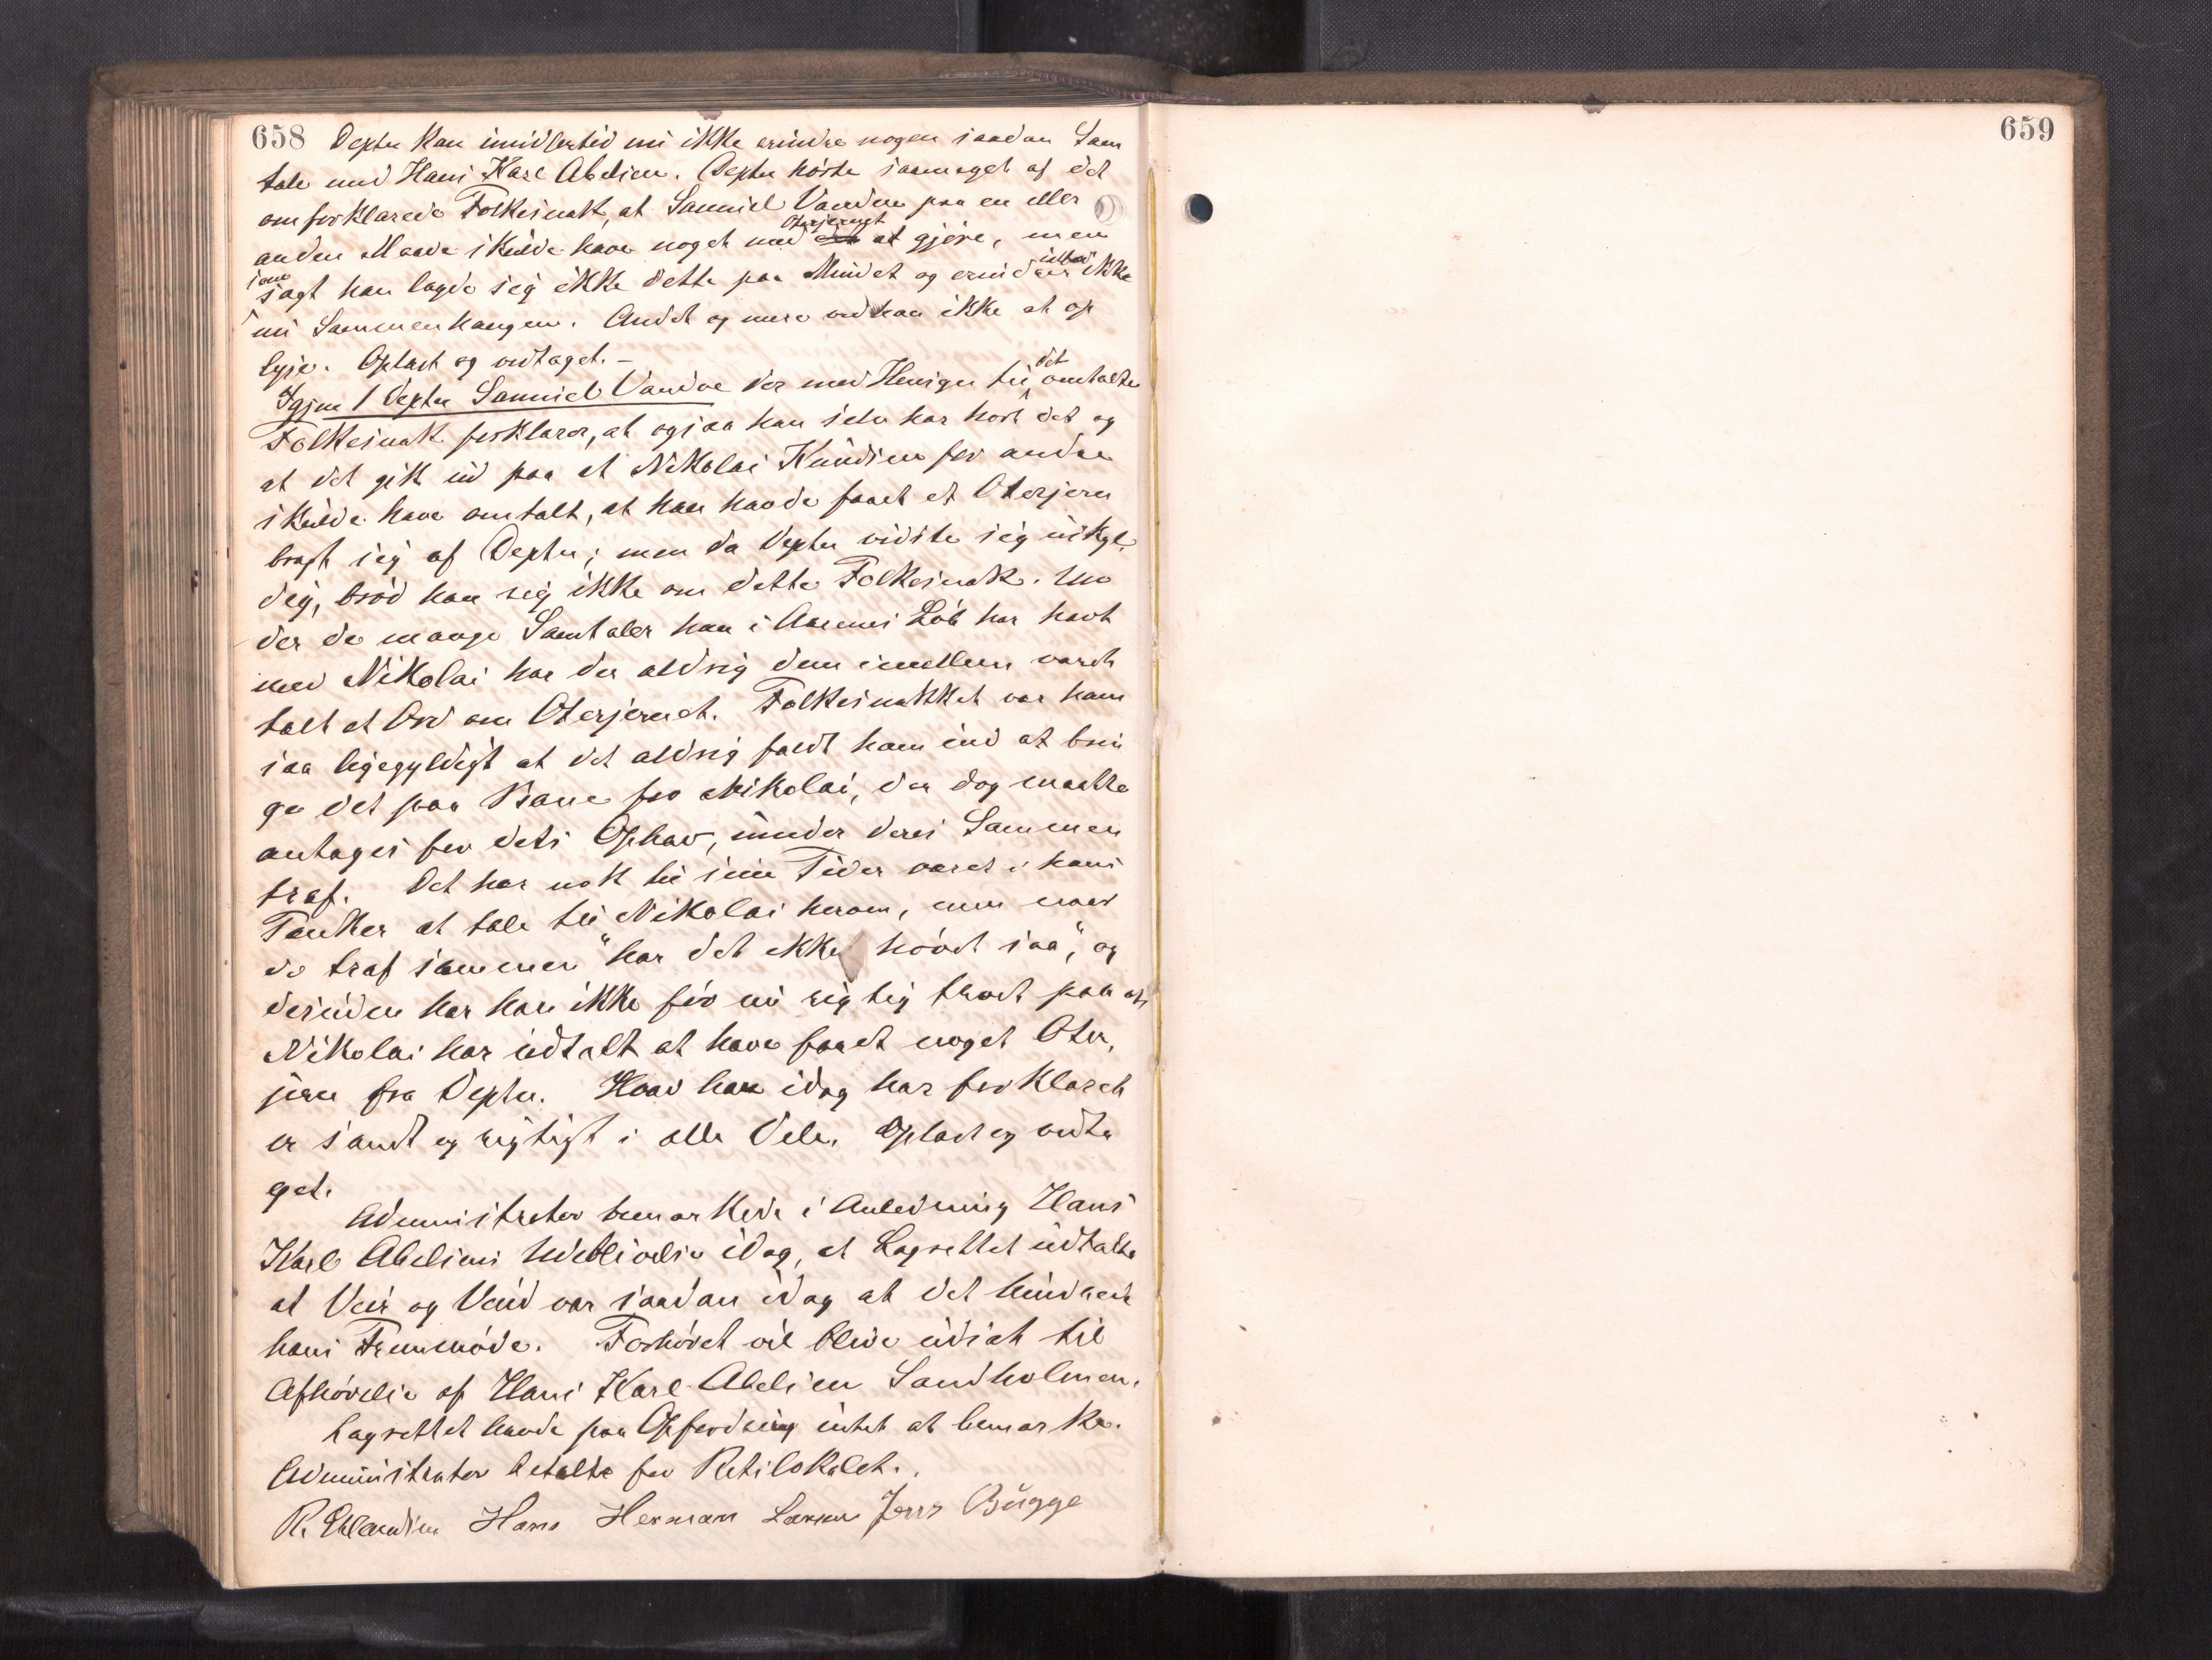 658 Deptn kan imidlertid nu ikke erindre nogen saadan Sam
tale med Hans Karl Abelsen. Deptn hørte saameget af det
omforklarede Folkesnakk, at Samuel Vandve paa en eller
anden Maade skulde have noget med Oterjernet at gjøre, men
som sagt han lagde sig ikke dette paa Mindet og erindrer ikke
nu Sammenhængen. Andet og mere ved han ikke at op
lyse. Oplæst og vedtaget. –
Igjen 1 Deptn Samuel Vandve der med Hensyn til det omtalte
Folkesnak forklarer, at ogsaa han selv har hørt det og
at det gik ud paa at Nikolai Knudsen for andre
skulde have omtalt, at han havde faaet et Oterjern
bragt sig af Deptn; men da Deptn vidste sig uskyl,
dig, brød han sig ikke om dette Folkesnak. Un
der de mange Samtaler han i Aarenes Løb har havt
med Nikolai har der aldrig dem imellem været
talt et Ord om Oterjernet. Folkesnakket var ham
saa ligegyldigt at det aldrig faldt ham ind at brin
ge det paa Bane for Nikolai, der dog maatte
antages for dets Ophav, under deres Sammen
træf. Det har nok til sine Tider været i hans
Tanker at tale til Nikolai herom, men naar
de traf sammen "har det ikke høvet saa", og
desuden har han ikke før nu rigtig troet paa at
Nikolai har udtalt at have faaet noget Oter,
jern fra Deptn. Hvad han idag har forklaret
er sandt og rigtigt i alle Dele. Oplæst og vedta
get.
Administrator bemærkede i Anledning Hans
Karl Abelsens Udeblivelse idag, at Lagrettet udtalte
at Veir og Vind var saadan idag at det hindrede
hans Fremmøde. Forhøret vil blive udsat til
Afhørelse af Hans Karl Abelsen Sandholmen.
Lagrettet havde paa Opfordring intet at bemærke.
Administrator betalte for Retslokalet.
Hans Herman Larsen Jens Bugge
659